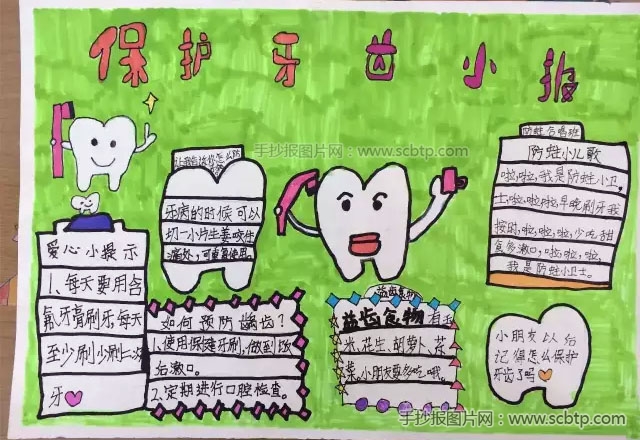 保护牙齿小报
手抄报图片网：www.scbtp.com
牙病的时候可以
切一小片生姜咬住
痛处，可重复使用。
防蛀合唱班
防蛀小儿歌
啦，啦，我是防蛀小卫
士，啦，啦，啦，早晚刷牙我
按时，啦，啦，啦，少吃甜
食多漱口，啦，啦，啦，
我是防蛀小卫士。
爱心小提示
1、每天要用含
氟牙膏刷牙每天
至少刷少刷二次
牙
如何预防龋齿？
1.使用保健牙刷，做到饭
后漱口。
2.定期进行口腔检查。
益齿食物
益齿食物 有玉
米、花生、胡萝卜、芹
菜。小朋友要多吃哦。
小朋友以后
记得怎么保护
牙齿了吗
手抄报图片网：www.scbtp.com